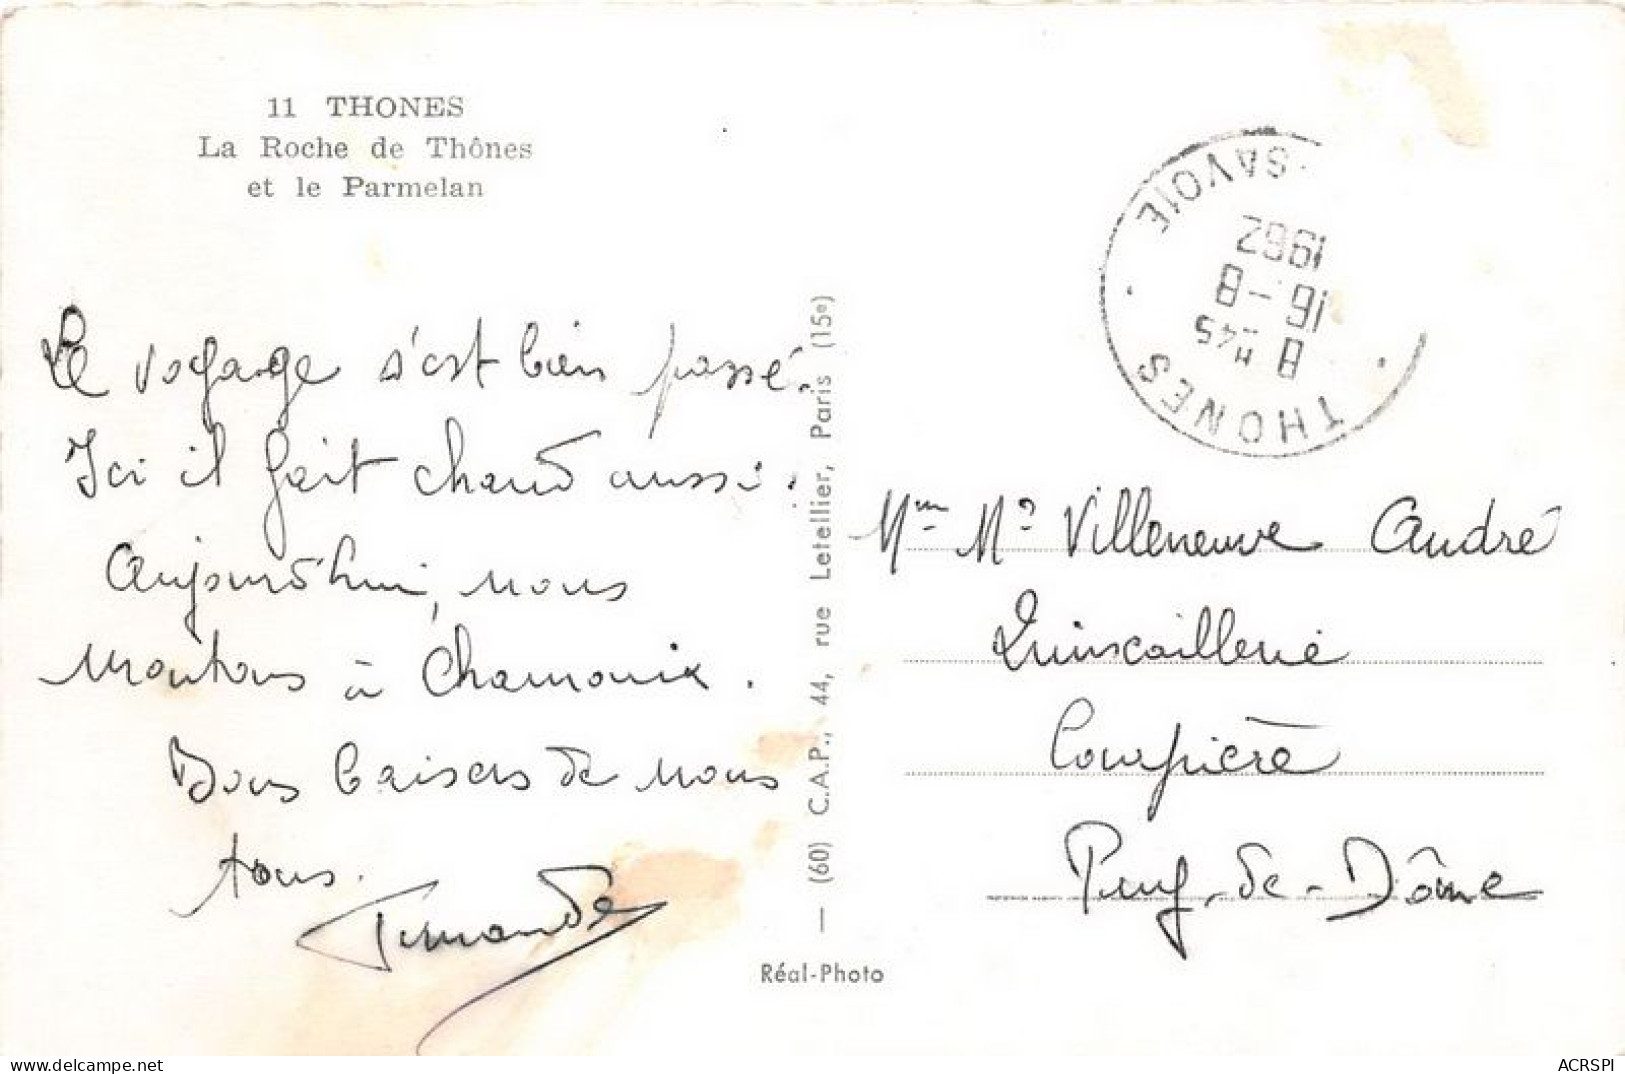 11 THONES
La Roche de Thônes
et le Parmelan
Le voyage s'est bien passé.
Ici il fait chaud aussi.
Aujourd'hui, nous
montons à Chamonix.
Doux baisers de nous
tous.
Fernande
(60) C.A.P., 44, rue Letellier, Paris (15e)
Réal-Photo
THONES
8 H 45
16-8
1962
SAVOIE
Mme Mr Villeneuve André
Quinscaillerie
Courpière
Puy-de-Dôme
ACRSPI